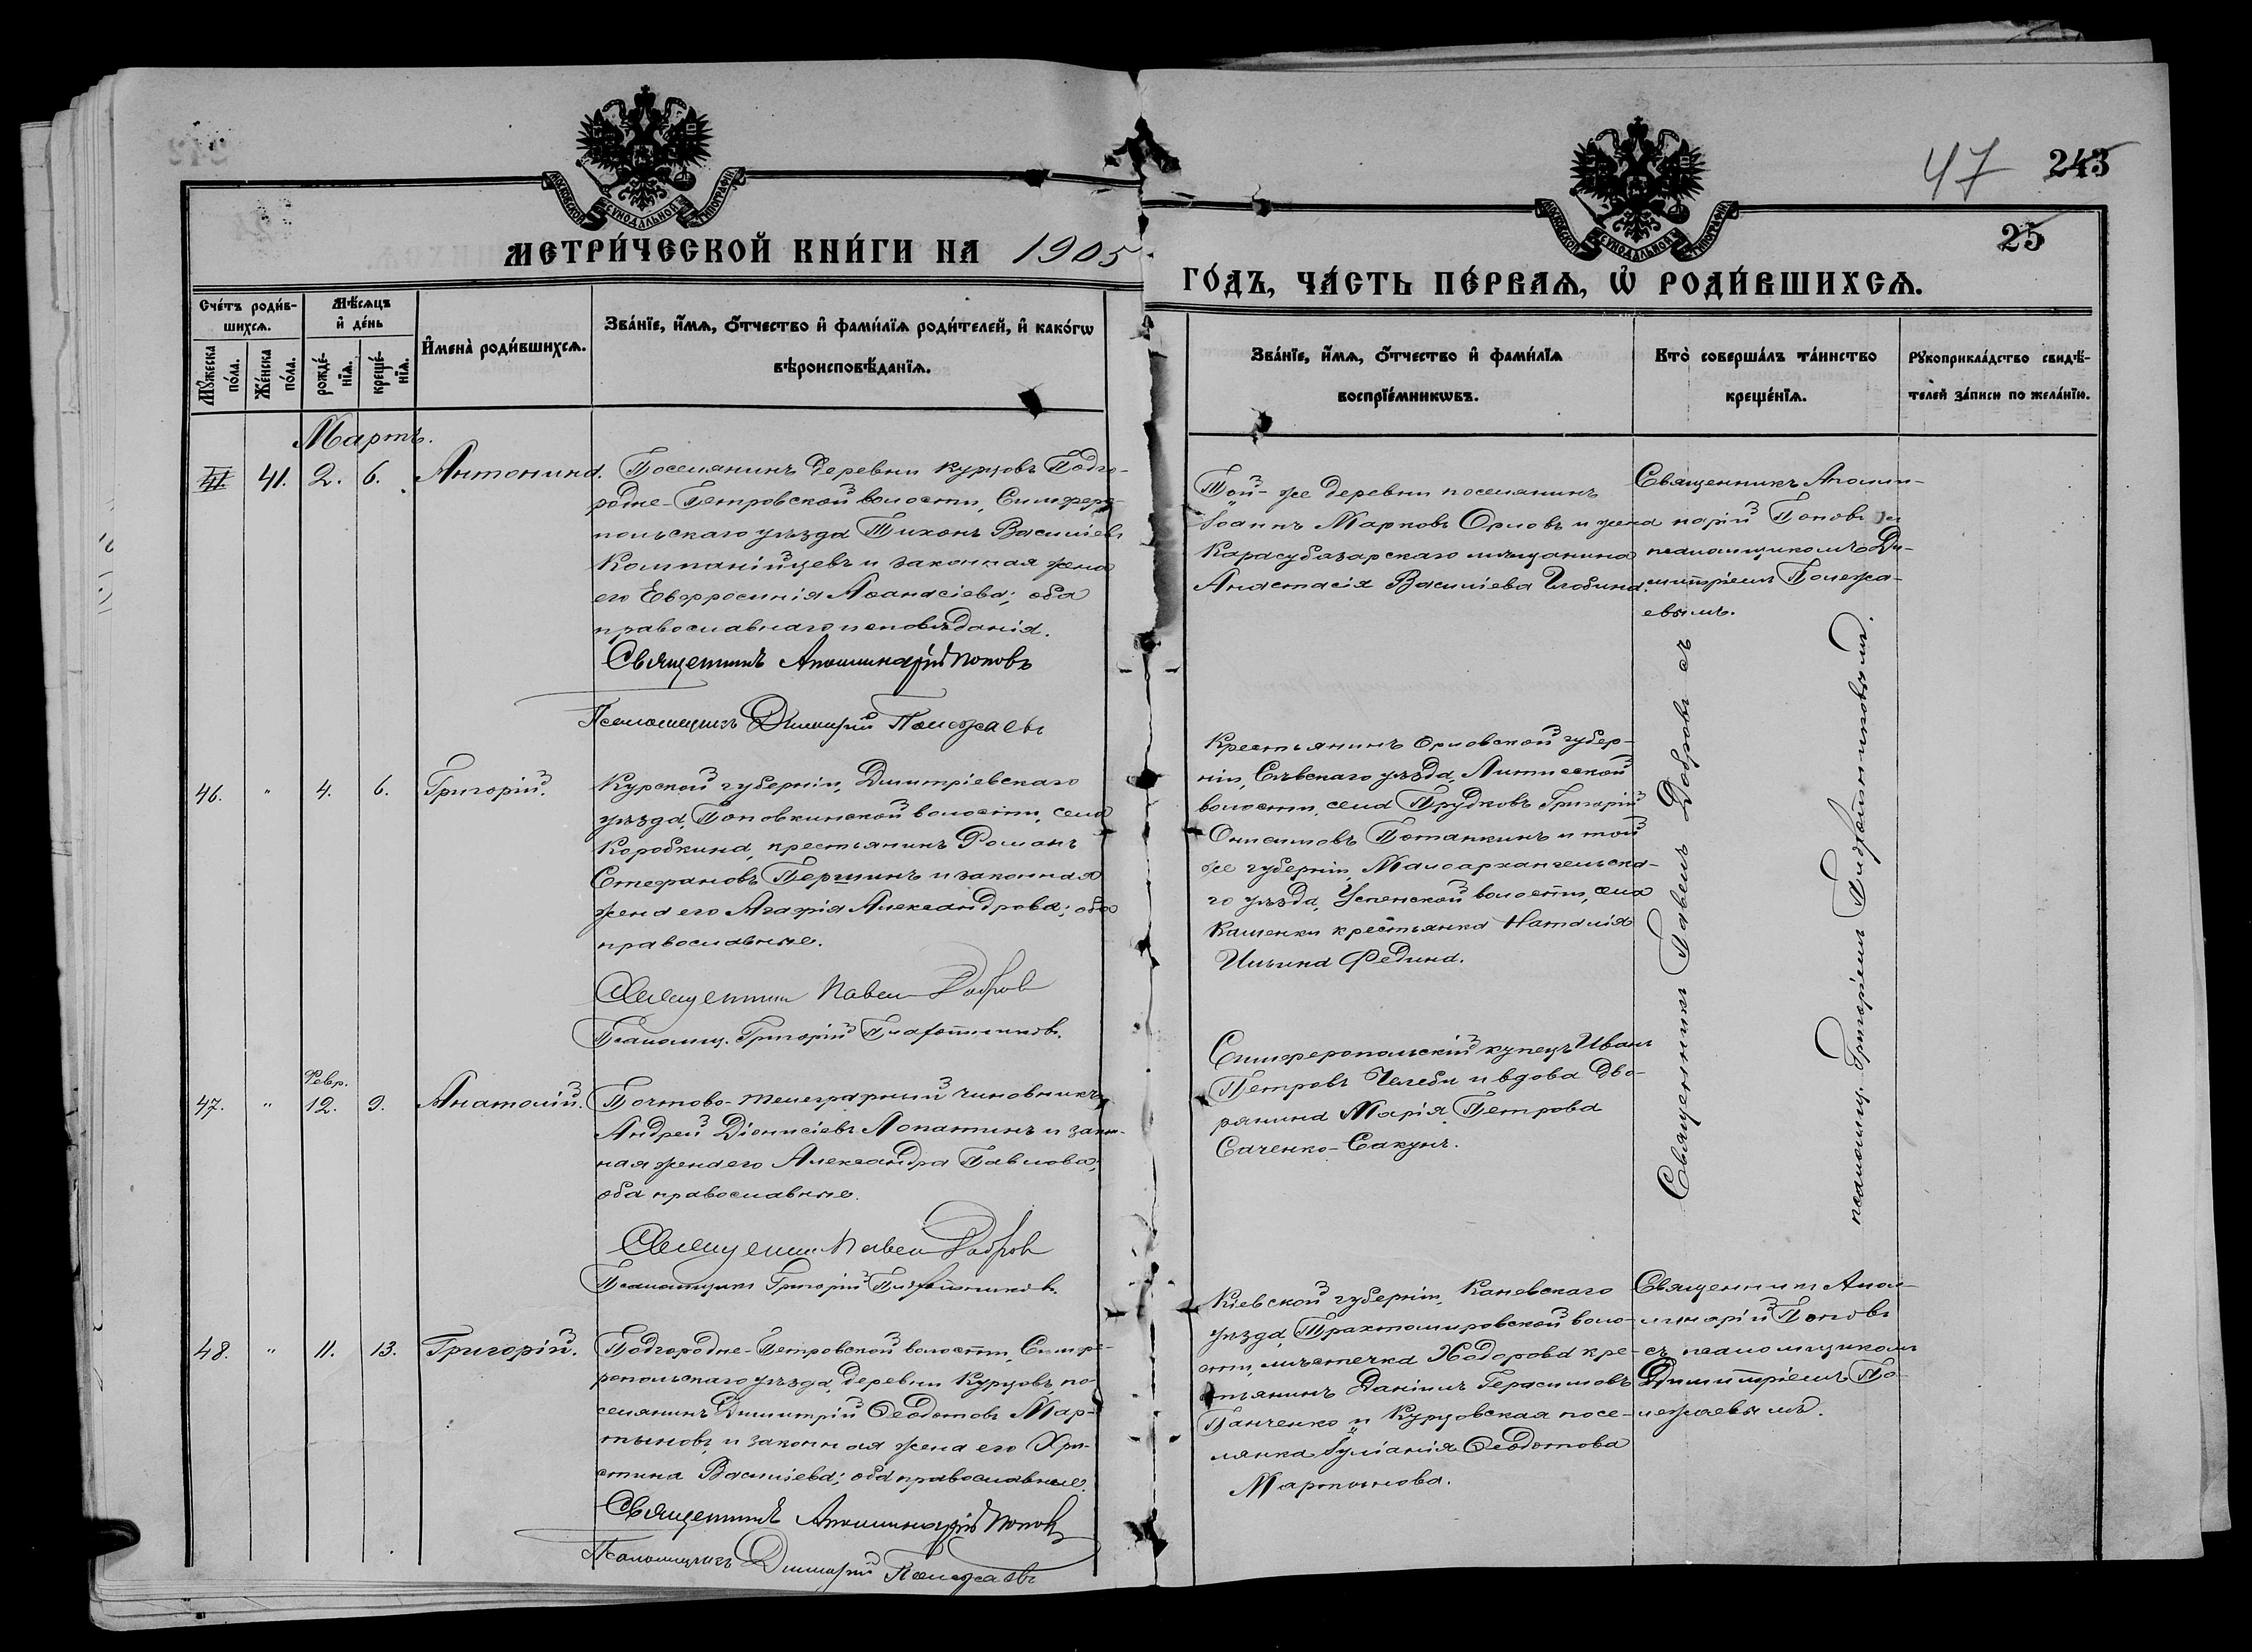 47 243
25
МОСКОВСКОЙ СУНОДАЛЬНОЙ ТИПОГРАФІИ
МОСКОВСКОЙ СУНОДАЛЬНОЙ ТИПОГРАФІИ
МЕТРИ́ЧЕСКОЙ КНИ́ГИ НА 1905
ГО́ДЪ, ЧА́СТЬ ПЕ́РВАѦ, Ѡ҆ РОДИ́ВШИХСѦ.
Сче́тъ роди́в-
шихсѧ.
Мѣ́сѧцъ
и҆ де́нь
Мꙋ́жеска
по́ла.
Же́нска
по́ла.
рожде́-
нїѧ.
креще́-
нїѧ.
И҆мена̀ роди́вшихсѧ.
Зва́нїе, и҆́мѧ, ѻ҆́тчество и҆ фами́лїѧ роди́телей, и҆ како́гѡ
вѣроисповѣ́данїѧ.
Зва́нїе, и҆́мѧ, ѻ҆́тчество и҆ фами́лїѧ
воспрїе́мникѡвъ.
Кто̀ соверша́лъ та́инство
креще́нїѧ.
Рꙋкоприкла́дство свидѣ́-
телей за́писи по жела́нїю.
Мартъ.
41. 2. 6. Антонина.
Поселянинъ деревни Курцовъ Подго-
родне-Петровской волости, Симферо-
польскаго уѣзда Тихонъ Васильевъ
Компанійцевъ и законная жена
его Евфросинія Аѳанасіева; оба
православнаго исповѣданія.
Священникъ Аполлинарій Поповъ
Псаломщикъ Димитрій Полежаевъ
Той-же деревни поселянинъ
Іоаннъ Марковъ Орловъ и жена
Карасубазарскаго мѣщанина
Анастасія Васильева
Священникъ Аполли-
нарій Поповъ съ
псаломщикомъ Ди-
митріемъ Полежа-
евымъ.
46. " 4. 6. Григорій.
Курской губерніи, Дмитріевскаго
уѣзда, Поповкинской волости, села
Коробкина, крестьянинъ Романъ
Стефановъ Першинъ и законная
жена его Агафія Александрова; оба
православные.
Священникъ Павелъ Добровъ
Псаломщ. Григорій
Крестьянинъ Орловской губер-
ніи, Сѣвскаго уѣзда, Литижской
волости, села Прудковъ Григорій
Онисимовъ Потапкинъ и той
же губерніи, Малоархангельска-
го уѣзда, Успенской волости, села
Каменки крестьянка Наталія
Ильина Федина.
Священникъ Павелъ Добровъ съ
псаломщ. Григоріемъ
47. " Февр. 12. 9. Анатолій.
Почтово-телеграфный чиновникъ
Андрей Діонисіевъ Лопатинъ и закон-
ная жена его Александра Павлова;
оба православные.
Священникъ Павелъ Добровъ
Псаломщикъ Григорій
Симферопольскій купецъ Иванъ
Петровъ Челеби и вдова дво-
рянина Марія Петрова
Саченко-Сакунъ.
48. " 11. 13. Григорій.
Подгородне-Петровской волости, Симфе-
ропольскаго уѣзда, деревни Курцовъ, по-
селянинъ Димитрій Ѳеодотовъ Мар-
тыновъ и законная жена его Хри-
стина Васильева; оба православные.
Священникъ Аполлинарій Поповъ
Псаломщикъ Димитрій Полежаевъ
Кіевской губерніи, Каневскаго
уѣзда, Трахтомировской воло-
сти, мѣстечка Ходорова кре-
стьянинъ Даніилъ Герасимовъ
Панченко и Курцовская посе-
лянка Іуліанія Ѳеодотова
Мартынова.
Священникъ Апол-
линарій Поповъ
съ псаломщикомъ
Димитріемъ По-
лежаевымъ.